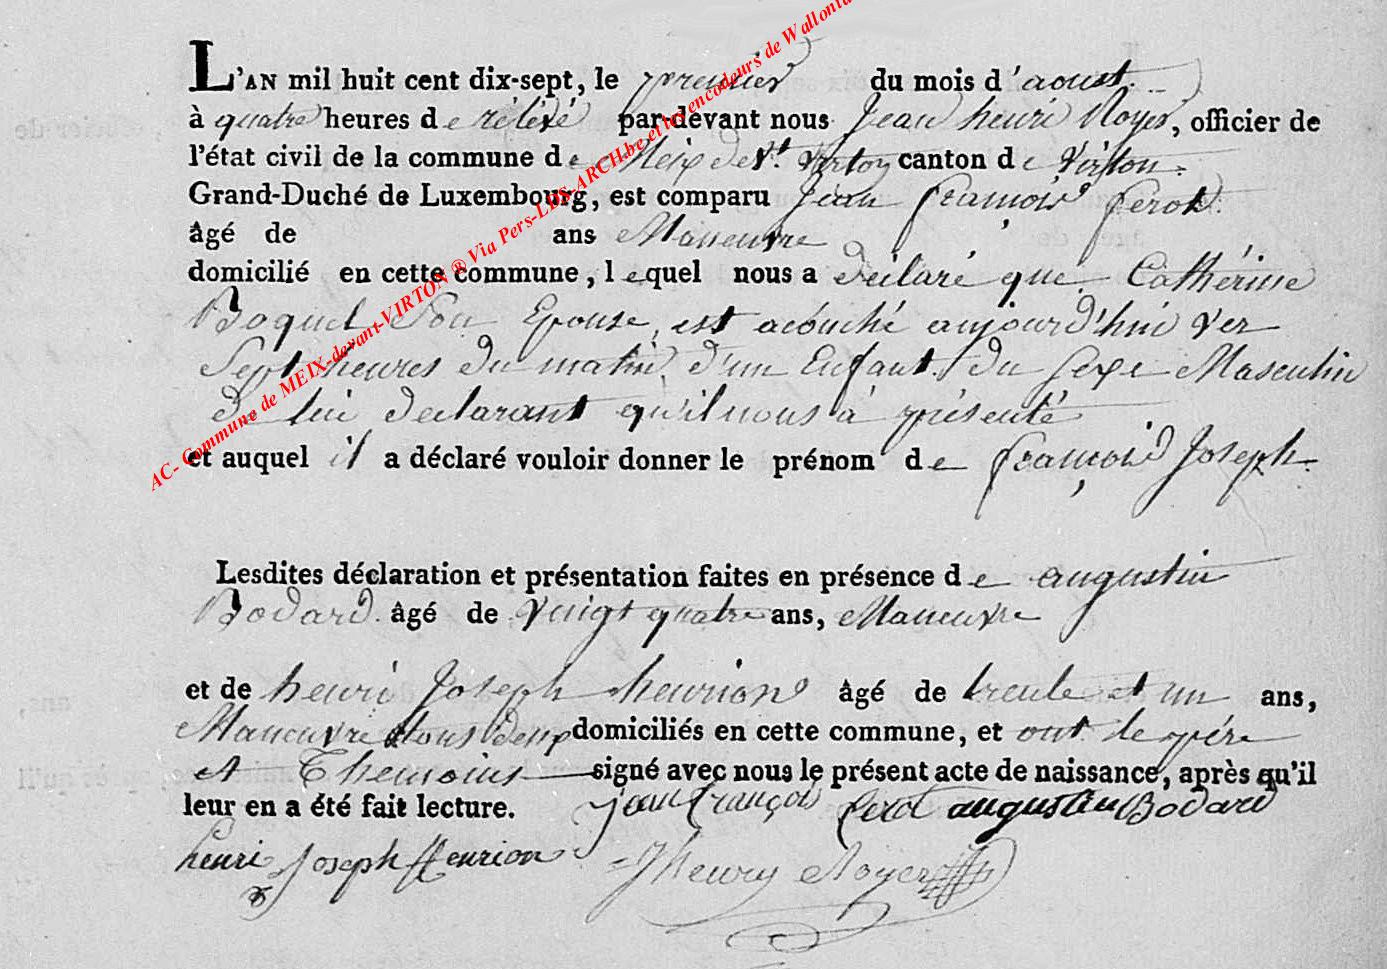 L'AN mil huit cent dix-sept, le premier du mois d'aoust
à quatre heures de rélévé par-devant nous Jean henri Noyer, officier de
l'état civil de la commune de Meix devt. Virton canton de Virton.
Grand-Duché de Luxembourg, est comparu Jean françois ferot
âgé de ans Maneuvre
domicilié en cette commune, lequel nous a déclaré que Cathérine
Boquel Son Epouse, est acouché aujourd'hui ver
Sept heures du matin d'un Enfant du Sexe Masculin
de lui declarant qu'il nous à présenté
et auquel il a déclaré vouloir donner le prénom de françois Joseph
Lesdites déclaration et présentation faites en présence de augustin
Bodard. âgé de vingt quatre ans, Maneuvre
et de henri Joseph henrion âgé de trente et un ans,
Maneuvre tous deux domiciliés en cette commune, et ont le père
et Themoins signé avec nous le présent acte de naissance, après qu'il
leur en a été fait lecture. jean françois ferot augustin Bodard
henri Joseph Henrion Jhenry Noyer
AC- Commune de MEIX-devant-VIRTON ® Via Pers-LDS-ARCH.be et les encodeurs de Wallonia